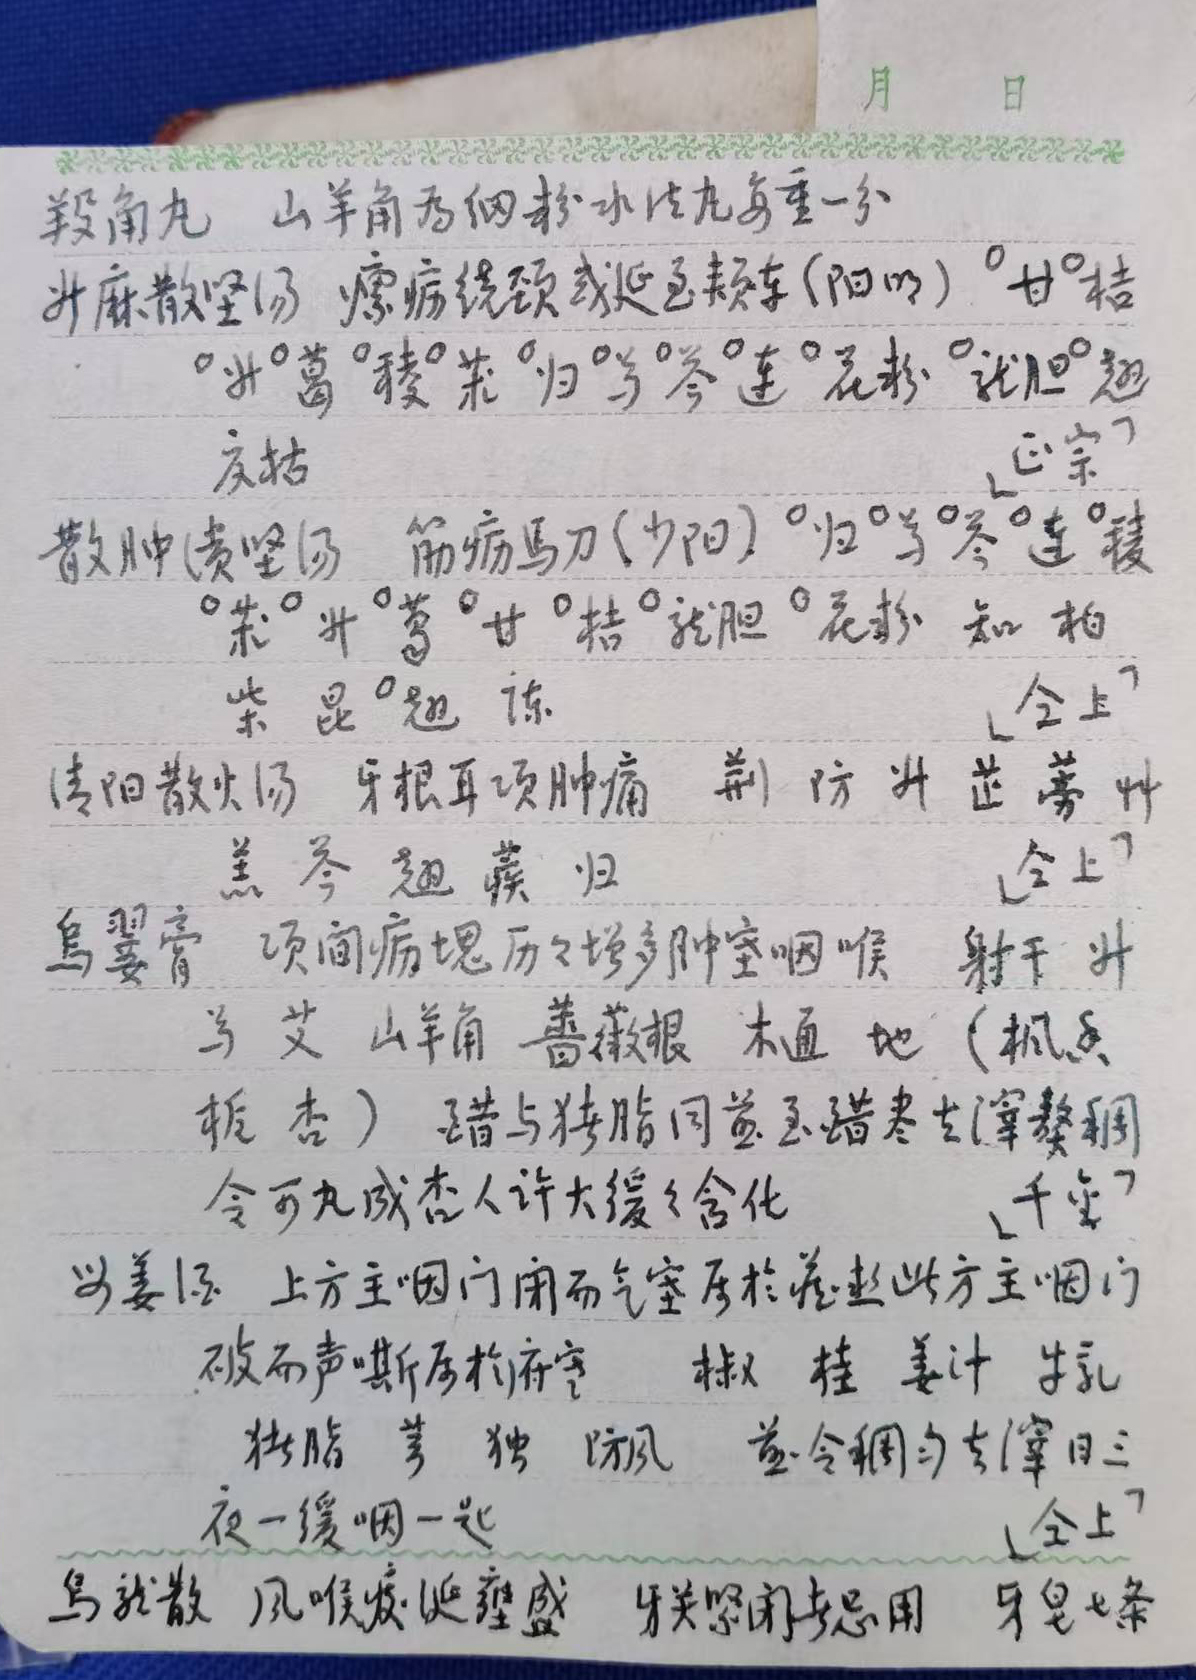 月 日
羖角丸 山羊角为细粉水法丸每重一分
升麻散坚汤 瘰疬绕颈或延至颊车(阳明) 甘 桔
升 葛 稜 莪 归 芍 芩 连 花粉 龙胆 翘
夏枯 「正宗」
散肿溃坚汤 筋疬馬刀(少阳) 归 芍 芩 连 稜
莪 升 葛 甘 桔 龙胆 花粉 知 柏
柴 昆 翘 「仝上」
清阳散火汤 牙根耳项肿痛 荆 防 升 芷 蒡 艸
羔 芩 翘 蒺 归 「仝上」
烏翣膏 项间疬塊历々增多肿塞咽喉 射干 升
芍 艾 山羊角 薔薇根 木通 地 (枫香
栀 杏) 醋与猪脂同煎至醋尽去滓熬稠
令可丸成杏人许大缓々含化 「千金」
姜酒 上方主咽门闭而气塞属於藏热此方主咽门
破而声嘶属於府寒 椒 桂 姜汁 牛乳
猪脂 芎 独 防风 煎令稠匀去滓日三
夜一缓咽一匙 「仝上」
烏龙散 风喉痰涎壅盛 牙关紧闭者忌用 牙皂七条